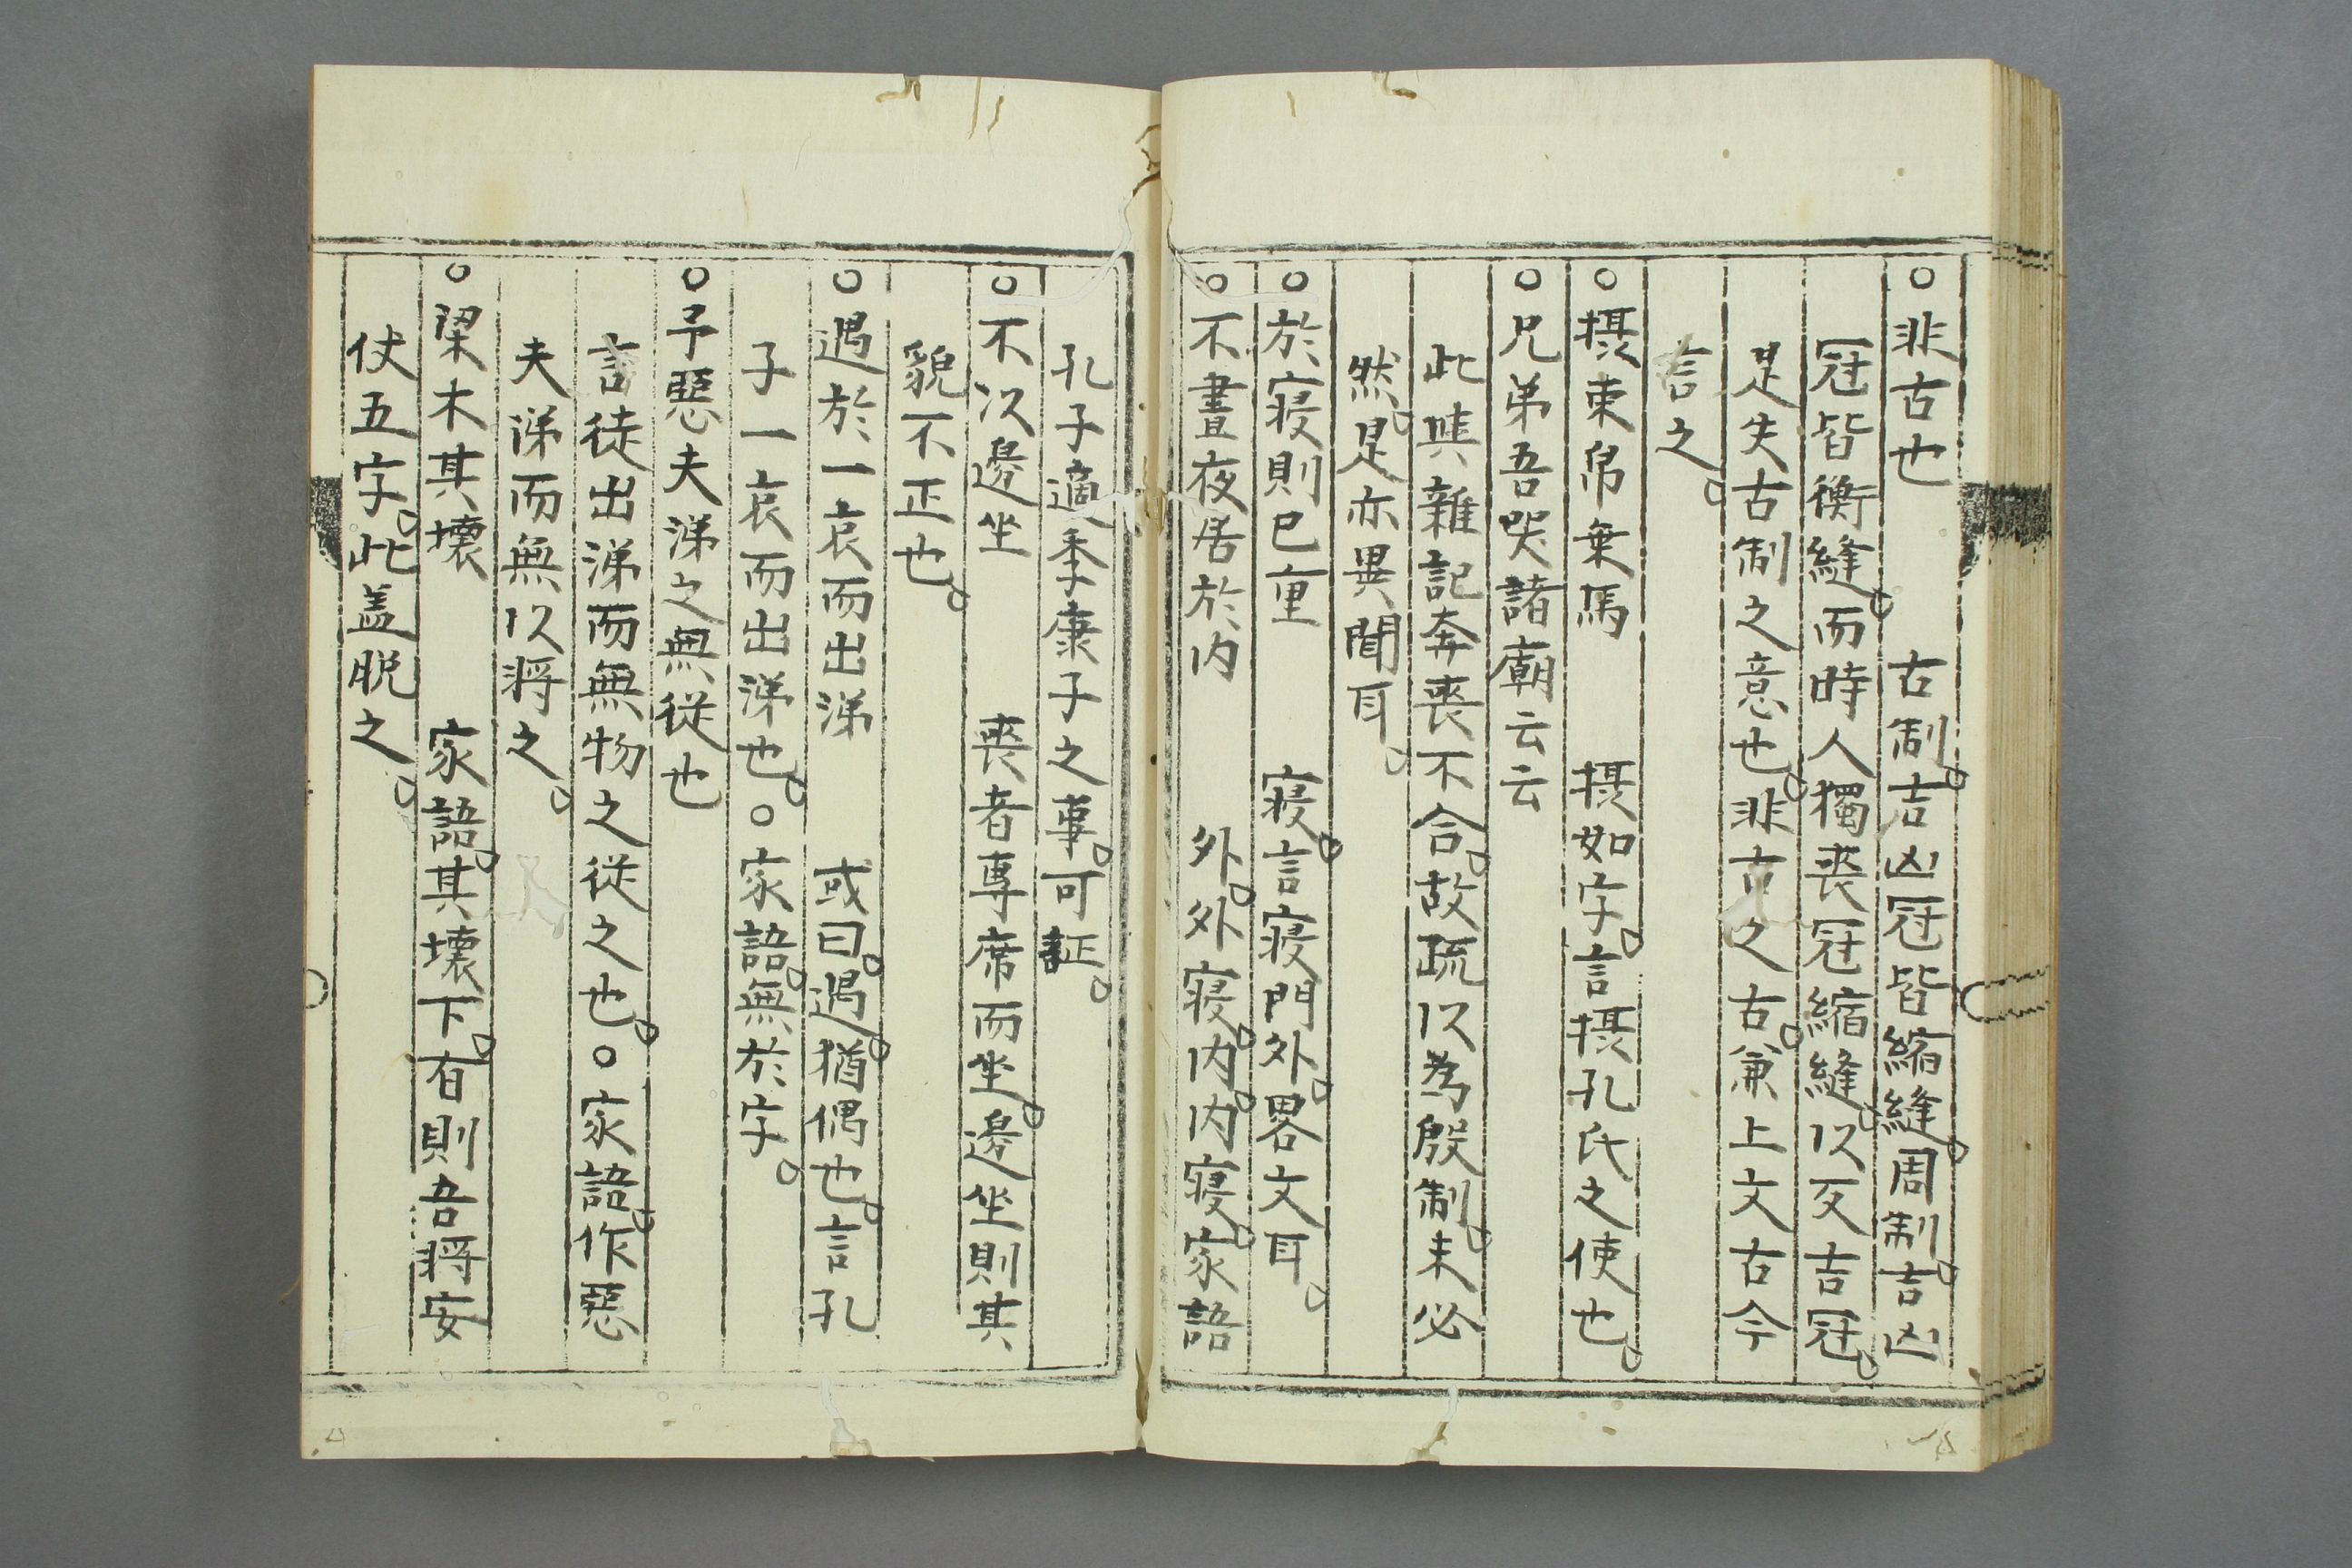 ○非古也　古制。吉凶冠皆縮縫。周制。吉凶
冠皆衡縫。而時人獨喪冠縮縫。以反吉冠。
是失古制之意也。非古之古。兼上文古今
言之。
○摂束帛乗馬　摂如字。言摂孔氏之使也。
○兄弟吾哭諸廟云云
此與雜記奔喪不合。故疏以為殷制。未必
然。是亦異聞耳。
○於寝則已重　寝。言寝門外。畧文耳。
○不晝夜居於内　外。外寝。内。内寝。家語
孔子適季康子之事。可証。
○不以邊坐　喪者專席而坐。邊坐則其
貌不正也。
○遇於一哀而出涕　或曰。遇。猶偶也。言孔
子一哀而出涕也。○家語。無於字。
○予惡夫涕之無従也
言徒出涕而無物之従之也。○家語。作惡
夫涕而無以将之。
○梁木其壊　家語。其壊下。有則吾将安
仗五字。此盖脱之。